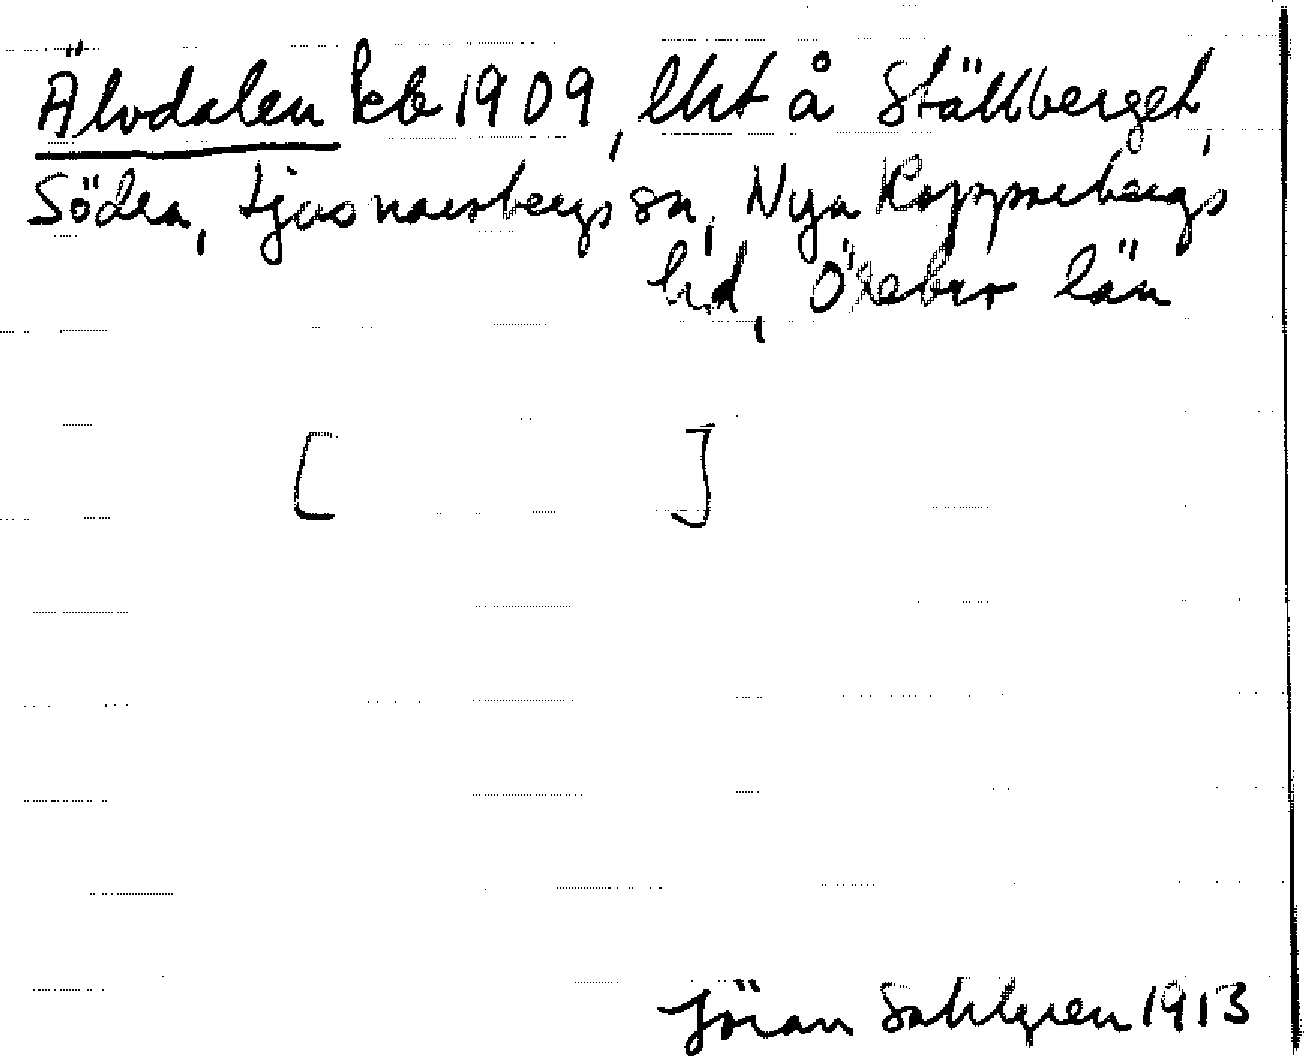 Älvdalen kb 1909, lht å Ställberget,
Södra, Ljusnarsbergs sn, Nya Kopparbergs
hd, Örebro län
[ ]
Jöran Sahlgren 1913